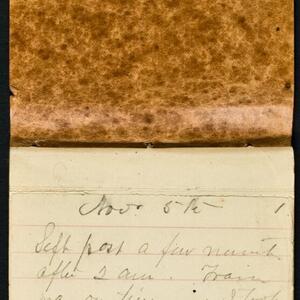 Nov 5th 1
Left post a few minut
after 2 am. Train
on time